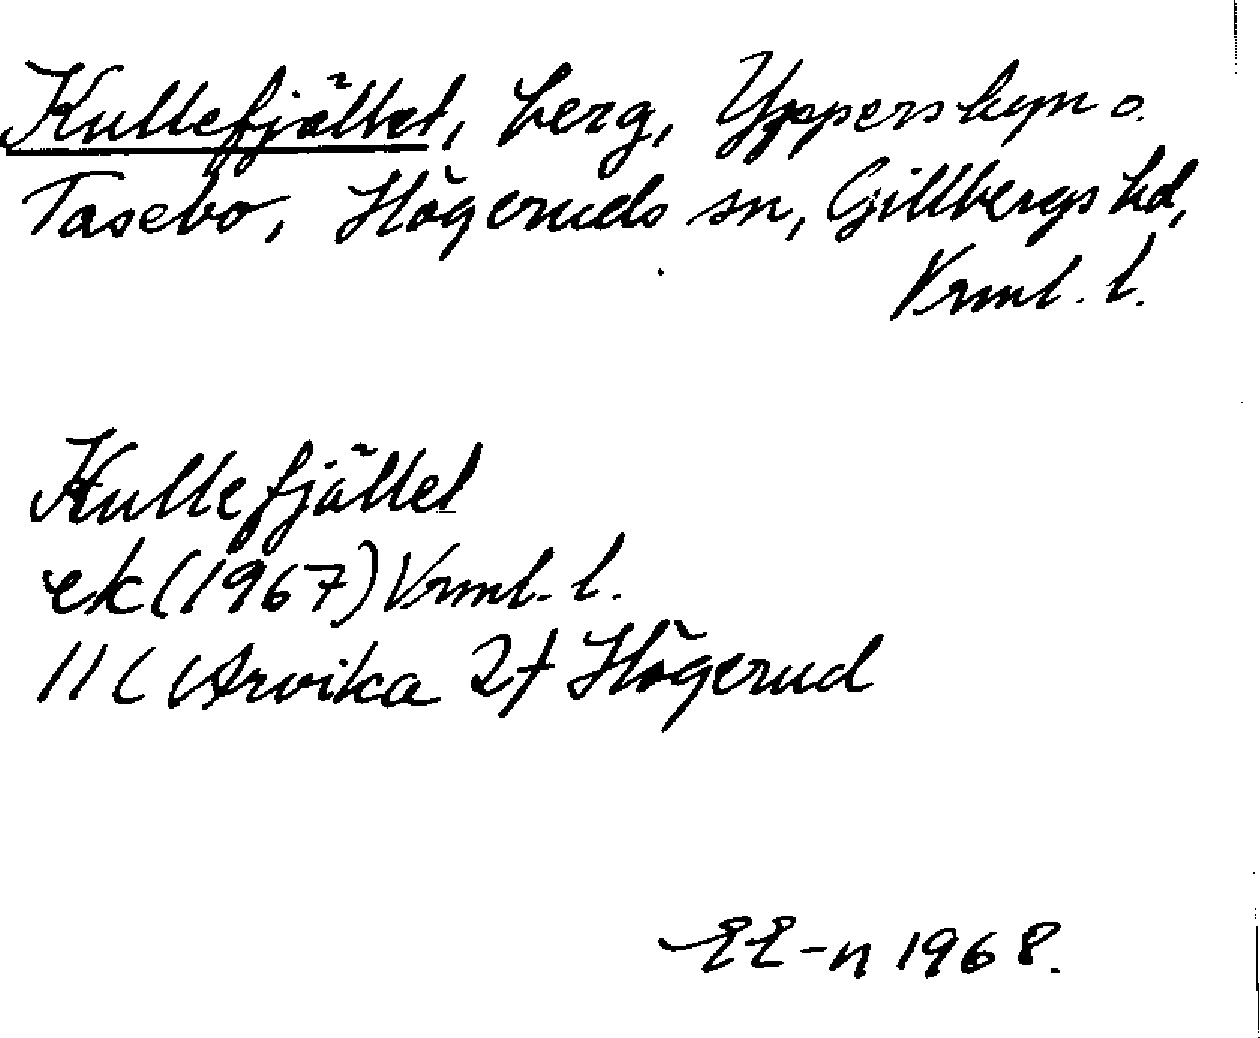 Kullefjället, berg, Ypperskyn o.
Tasebo, Högeruds sn, Gillbergs hd,
Vrml. l.
Kullefjället
ek (1967) Vrml. l.
11C Arvika 2f Högerud
EE-n 1968.